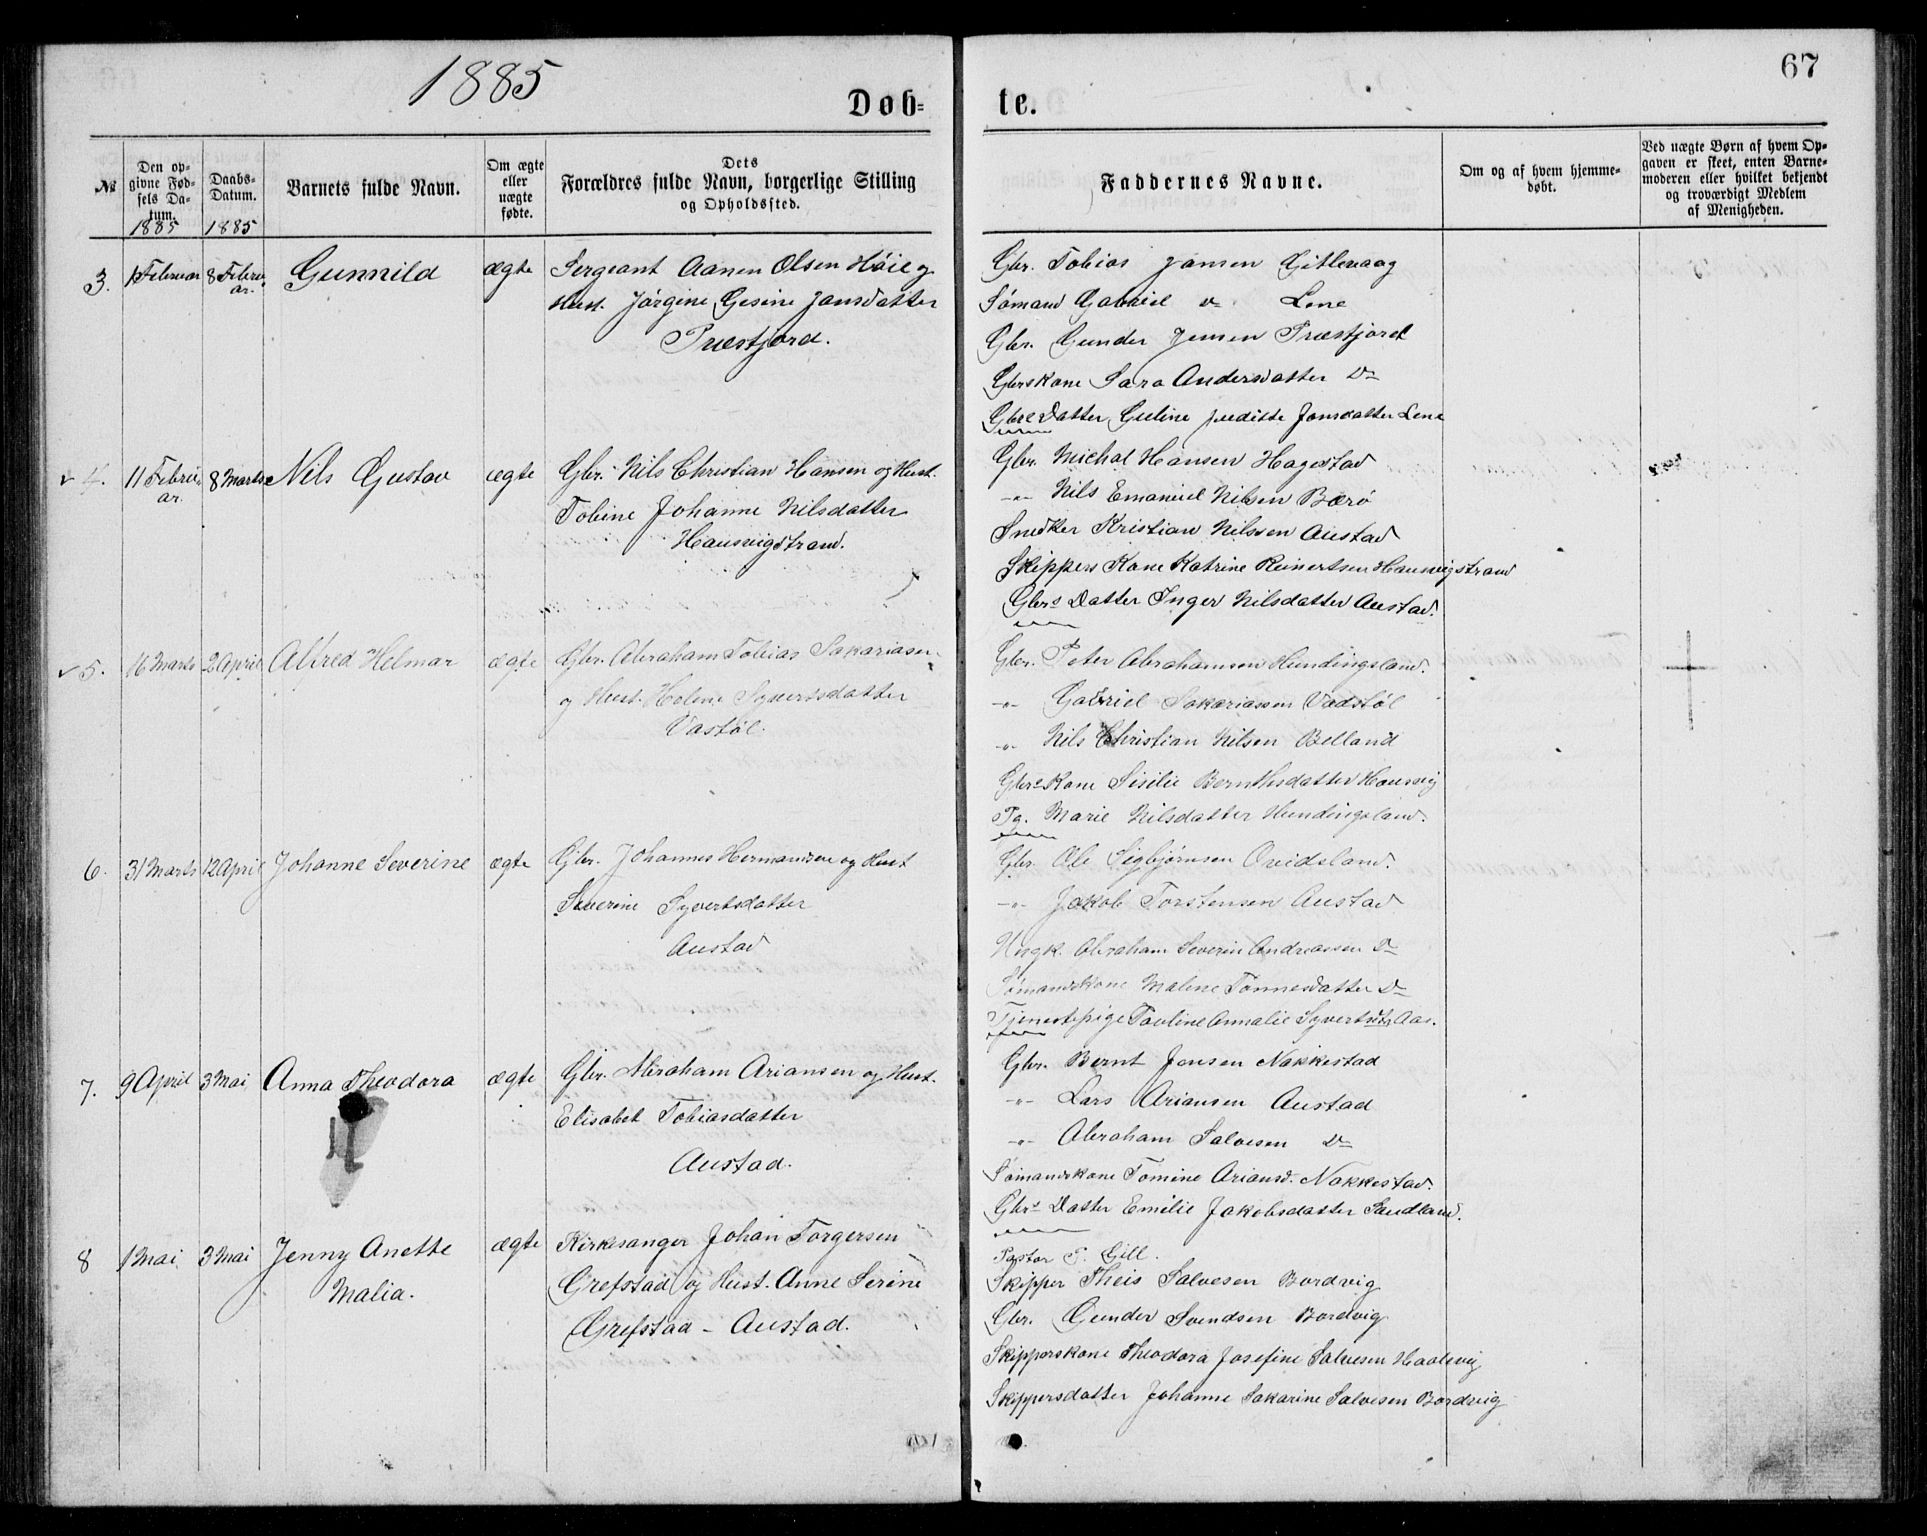 1885
67
Døb-
te.
№
Den opgivne Fødsels Datum. 1885
Daabs-Datum. 1885
Barnets fulde Navn.
Om ægte eller uægte fødte.
Dets Forældres fulde Navn, borgerlige Stilling og Opholdssted.
Faddernes Navne.
Om og af hvem hjemmedøbt.
Ved uægte Børn af hvem Opgaven er skeet, enten Barnemoderen eller hvilket bekjendt og troværdigt Medlem af Menigheden.
3. 1 Februar 8 Februar. Gunnild ægte
Sergeant Aanen Olsen Höie og
Hust. Jörgine Gesine Jansdatter
Præstjord.
Gbr. Tobias Jansen Gitlevaag
Sømand Gabriel do Lene
Gbr. Gunder Jensen Præstjord
Gbrskone Sara Andersdatter Do
Gbrs Datter Guline Juditte Jonsdatter Lene
4. 11 Februar. 8 Marts Nils Gustav ægte
Gbr. Nils Christian Hansen og Hust.
Tobine Johanne Nilsdatter
Hausvigstrand.
Gbr. Michal Hansen Hagestad
-"- Nils Emanuel Nilsen Bærö
Snedker Kristian Nilssen Austad
Skippers Kone Katrine Reinertsen Hausvigstrand
Gbrs Datter Inger Nilsdatter Austad.
5. 16 Marts 2 April Alfred Helmar ægte
Gbr. Abraham Tobias Sakariasen
og Hust. Helene Syvertsdatter
Vastöl.
Gbr. Peter Abrahamsen Hundingsland.
-"- Gabriel Sakariassen Vadstöl
-"- Nils Christian Nilsen Belland
Gbrs Kone Sisilie Berntsdatter Hausvig
Pg. Marie Nilsdatter Hundingsland.
6. 31 Marts 12 April Johanne Severine ægte
Gbr. Johannes Hermansen og Hust
Severine Syvertsdatter
Austad
Gbr. Ole Sigbjørnsen Qvidsland.
-"- Jakob Torstensen Austad
Ungk. Abraham Severin Andreassen Do
Sømandskone Malene Tønnesdatter Do
Tjenestepige Pauline Annalie Syvertsdtr Aas.
7. 9 April 3 Mai Anna Theodora ægte
Gbr. Abraham Ariansen og Hust.
Elisabet Tobiasdatter
Austad.
Gbr. Bernt Jensen Nakkestad
-"- Lars Ariansen Austad
-"- Abraham Salvesen Do
Sømandskone Tomine Ariansd. Nakkestad.
Gbrs Datter Emilie Jakobsdatter Sandland.
8 1 Mai 3 Mai Jenny Anette
Malia. ægte
Kirkesanger Johan Torgersen
Grefstad og Hust. Anne Serine
Grefstad - Austad.
Pastor Gill.
Skipper Theis Salvesen Bordvig
Gbr. Gunder Svendsen Bordvig
Skipperskone Theodora Josefine Salvesen
Skippersdatter Johanne Sakarine Salvesen Bordvig